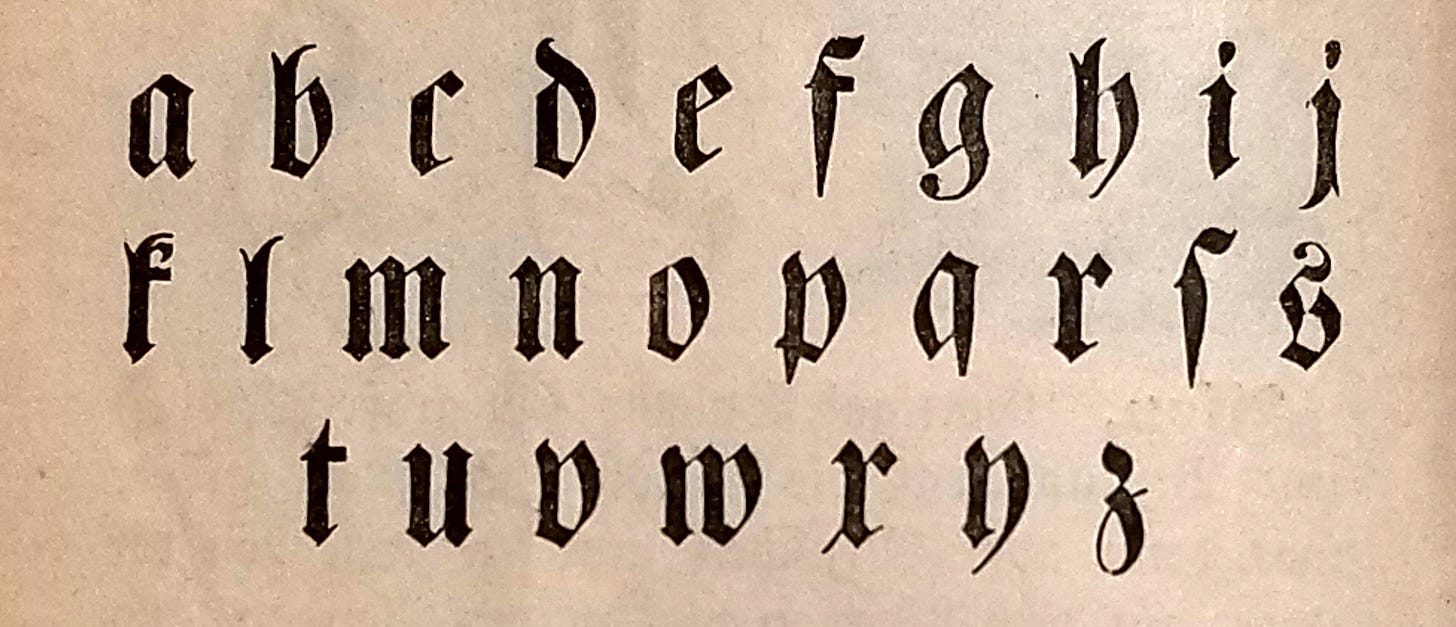 a b c d e f g h i j
k l m n o p q r ſ s
t u v w x y z